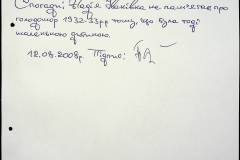 Спогади: Надія Іванівна не пам'ятає про
голодомор 1932-33рр тому, що була тоді
маленькою дитиною.
12.08.2008р. Підпис: